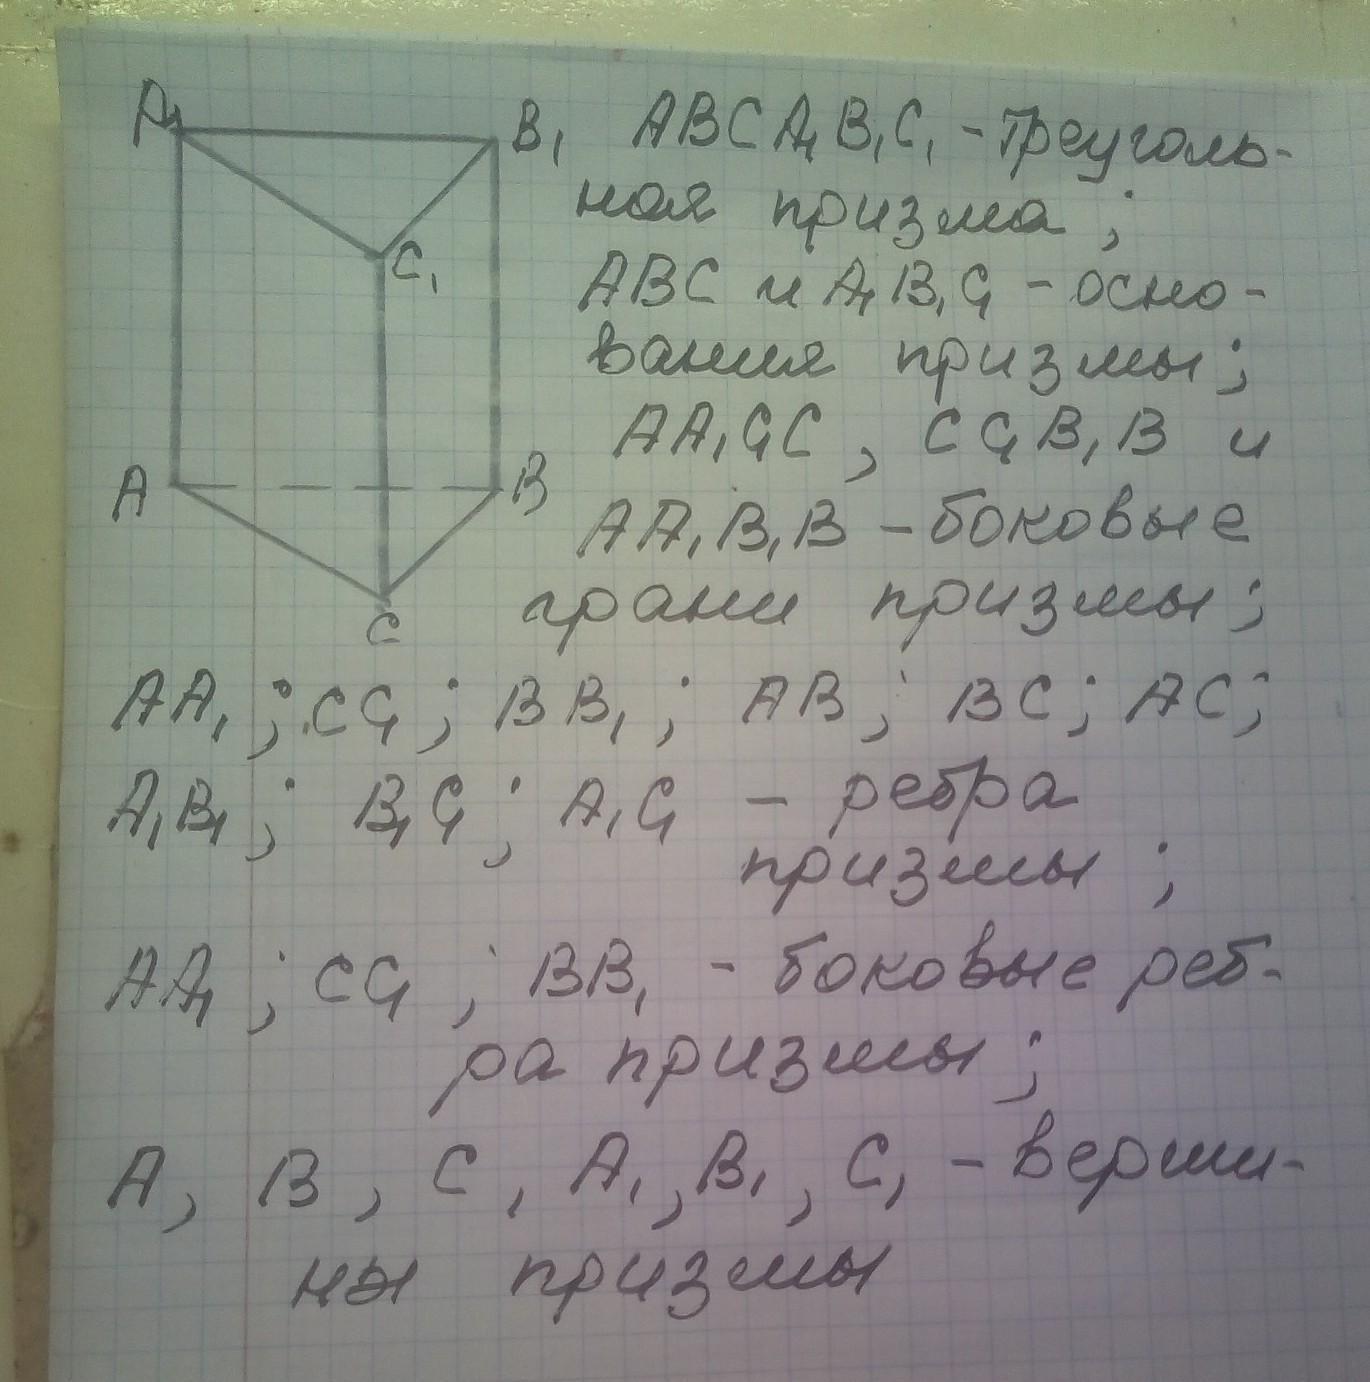 A₁
B₁
C₁
A
B
C
ABCA₁B₁C₁ - треуголь-
ная призма ;
ABC и A₁B₁C₁ - осно-
вания призмы ;
AA₁C₁C , CC₁B₁B и
AA₁B₁B - боковые
грани призмы ;
AA₁ ; CC₁ ; BB₁ ; AB ; BC ; AC ;
A₁B₁ ; B₁C₁ ; A₁C₁ - ребра
призмы ;
AA₁ ; CC₁ ; BB₁ - боковые реб-
ра призмы ;
A , B , C , A₁ , B₁ , C₁ - верши-
ны призмы